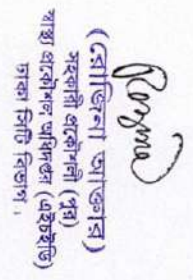 Rozina
(রোজিনা আক্তার)
সহকারী প্রকৌশলী (পুর)
স্বাস্থ্য প্রকৌশল অধিদপ্তর (এইচইডি)
ঢাকা সিটি বিভাগ।